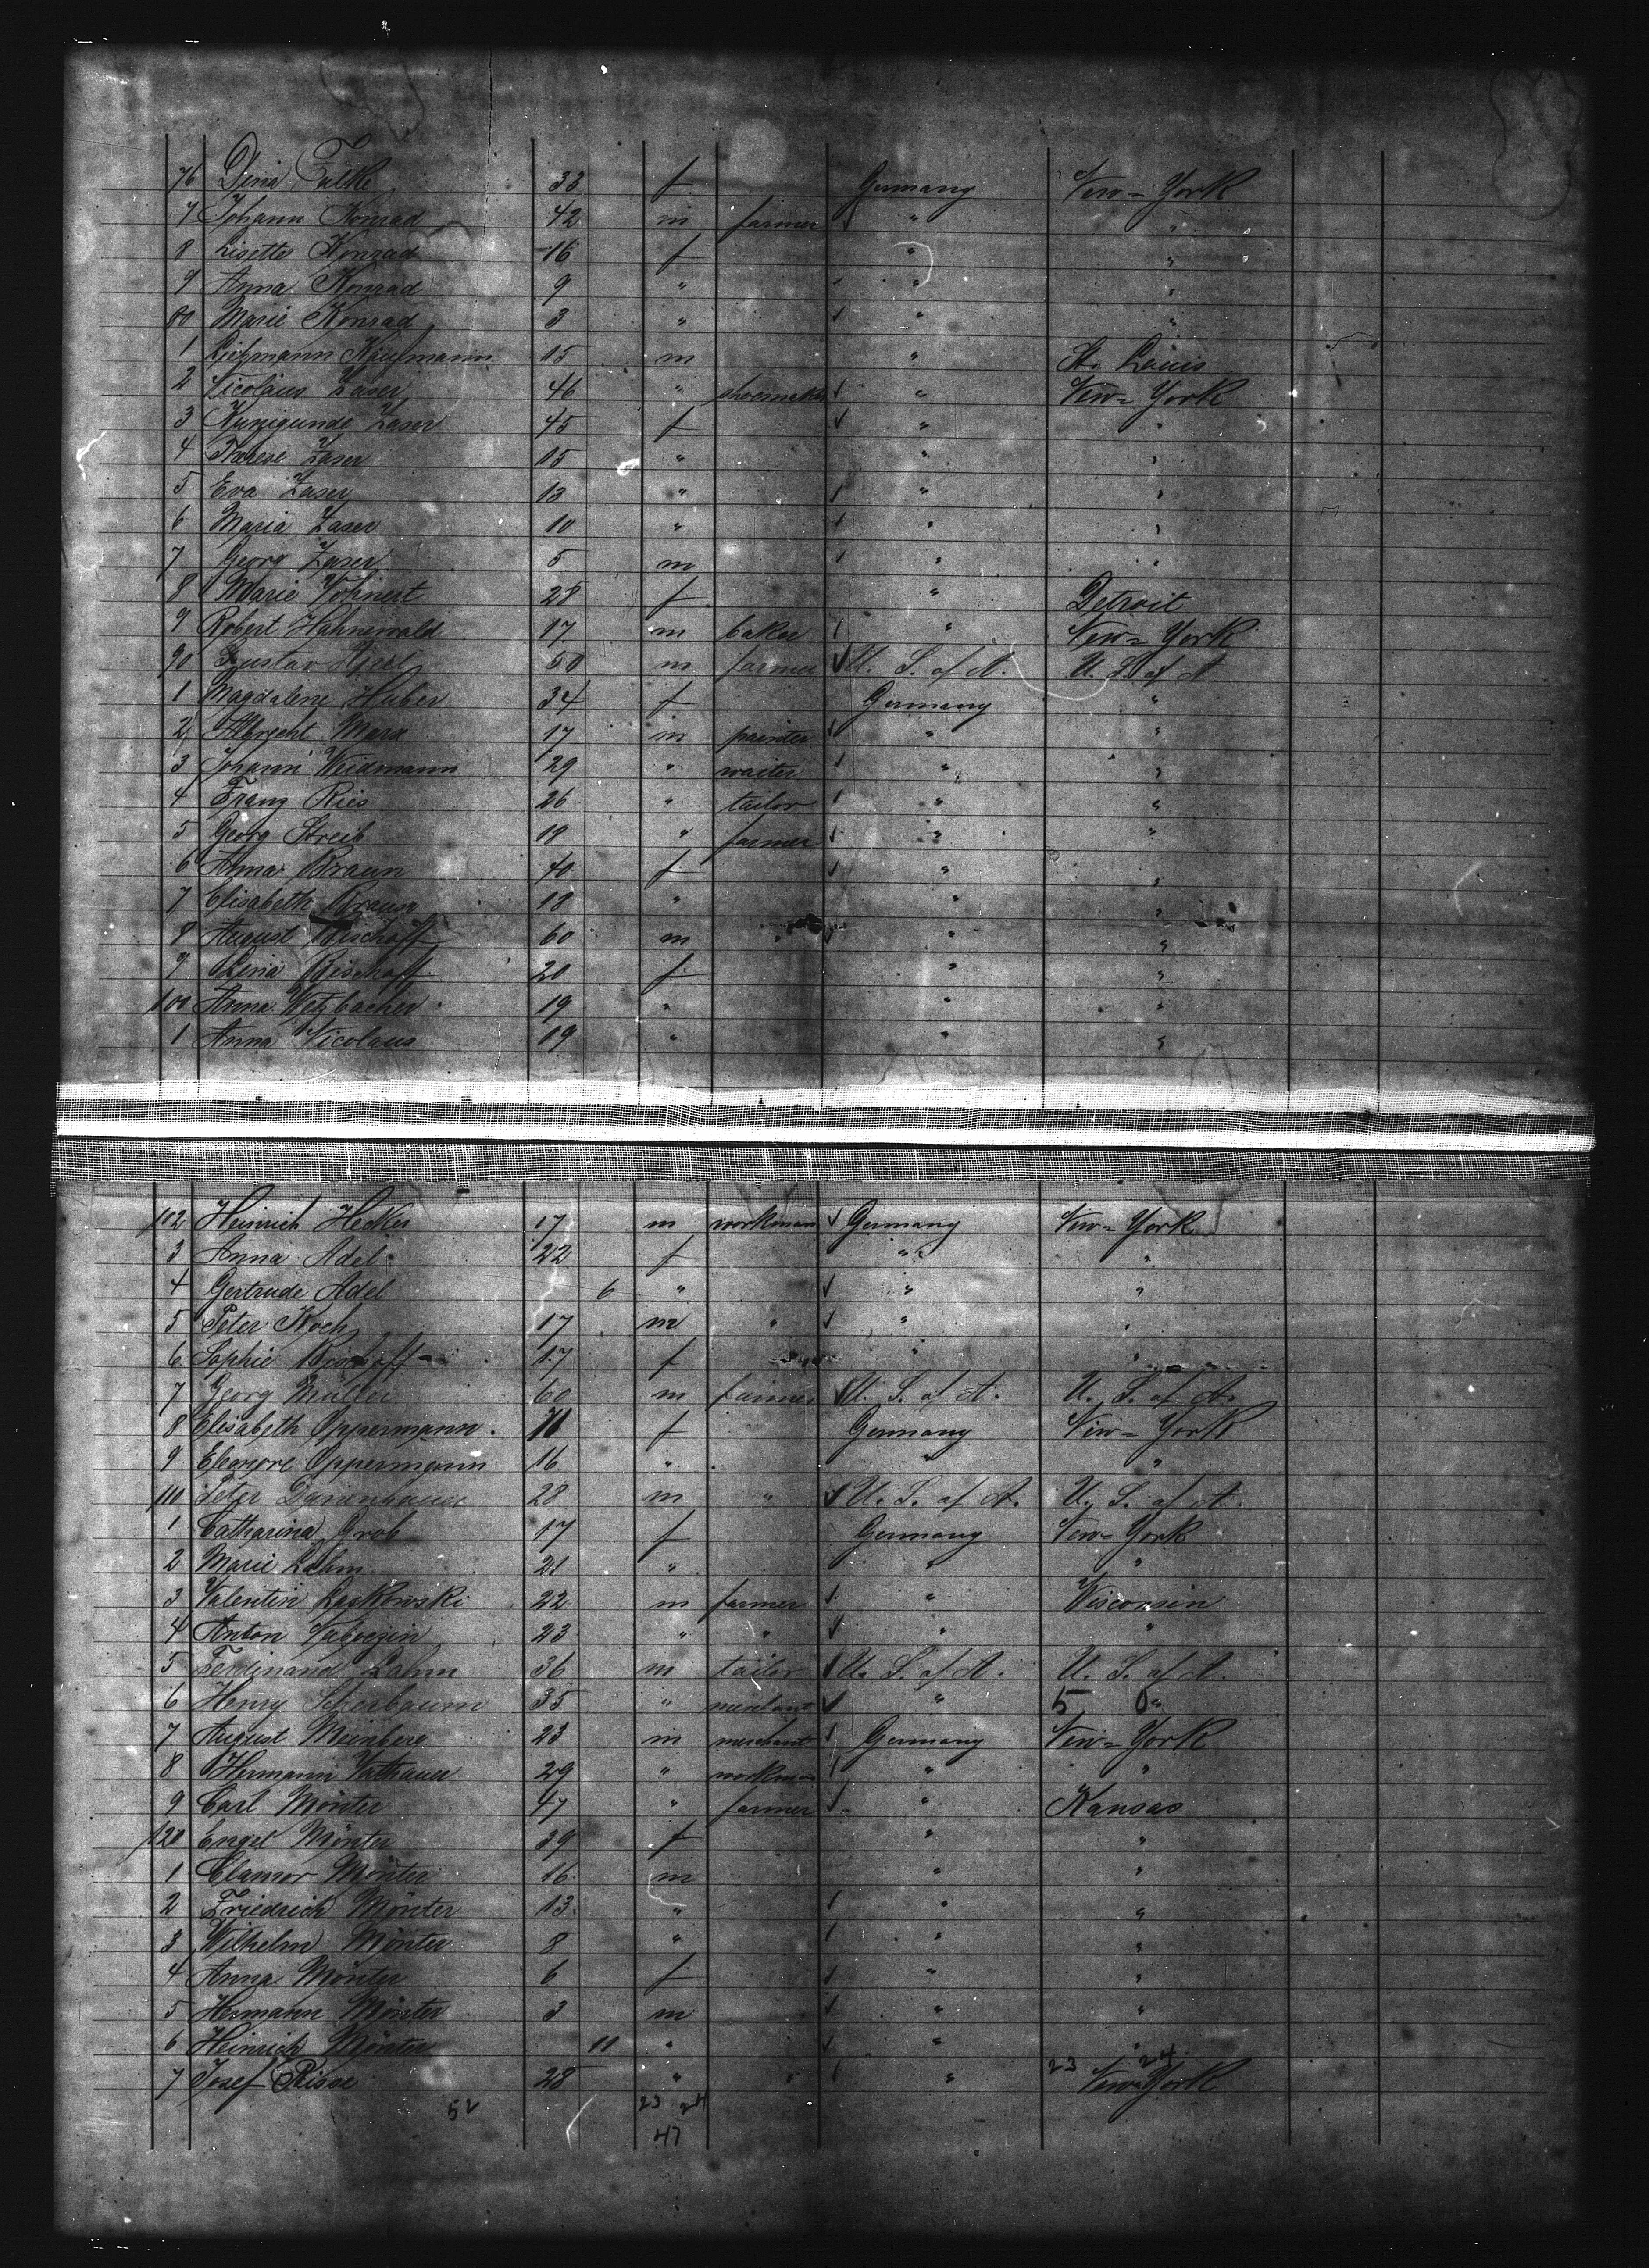 76 Dina Falke 33 f Germany New-York
7 Johann Konrad 42 m farmer " "
8 Lisette Konrad 16 f " "
9 Anna Konrad 9 " " "
80 Marie Konrad 3 " " "
1 Kaufmann 15 m " St. Louis
2 Nicolaus Zaser 46 " shoemaker " New-York
3 Kunigunde Zaser 45 f " "
4 Therese Zaser 15 " " "
5 Eva Zaser 13 " " "
6 Maria Zaser 10 " " "
7 Georg Zaser 5 m " "
8 Marie 28 f " Detroit
9 Robert Hahnewald 17 m baker " New-York
90 Gustav 50 m farmer U. S. of A. U. S. of A.
1 Magdalene Huber 34 f Germany "
2 Albrecht Marx 17 m painter " "
3 Johann Weidmann 29 " waiter " "
4 Franz Ries 26 " tailor " "
5 Georg Streib 18 " farmer " "
6 Anna Braun 40 f " "
7 Elisabeth Braun 18 " " "
8 August Bischoff 60 m " " "
9 Lina Bischoff 20 f " "
100 Anna Wetzbacher 19 " " "
1 Anna Nicolaus 19 " " "
102 Heinrich Hecker 17 m workman Germany New-York
3 Anna Adel 22 f " "
4 Gertrude Adel 6 " " "
5 Peter Koch 17 m " " "
6 Sophie Bischoff 17 f " "
7 Georg Müller 60 m farmer U. S. of A. U. S. of A.
8 Elisabeth Oppermann f Germany New-York
9 Eleonore Oppermann 16 " " "
110 Peter 28 m " U. S. of A. U. S. of A.
1 Catharina Grob 17 f Germany New-York
2 Marie Lahm 21 " " "
3 Valentin Laskowski 22 m farmer " Wisconsin
4 Anton 23 " " " "
5 Ferdinand Lahm 36 m tailor U. S. of A. U. S. of A.
6 Henry Scherbaum 35 " merchant " 5 0 "
7 August Meinberg 23 m merchant Germany New-York
8 Hermann Vathauer 29 " workman " "
9 Carl Mönter 47 " farmer " Kansas
120 Engel Mönter 39 f " "
1 Clamor Mönter 16 m " "
2 Friedrich Mönter 13 " " "
3 Wilhelm Mönter 8 " " "
4 Anna Mönter 6 f " "
5 Hermann Mönter 3 m " "
6 Heinrich Mönter 11 " " "
23 24
7 Josef Risse 28 " " " New-York
52 23 24
47